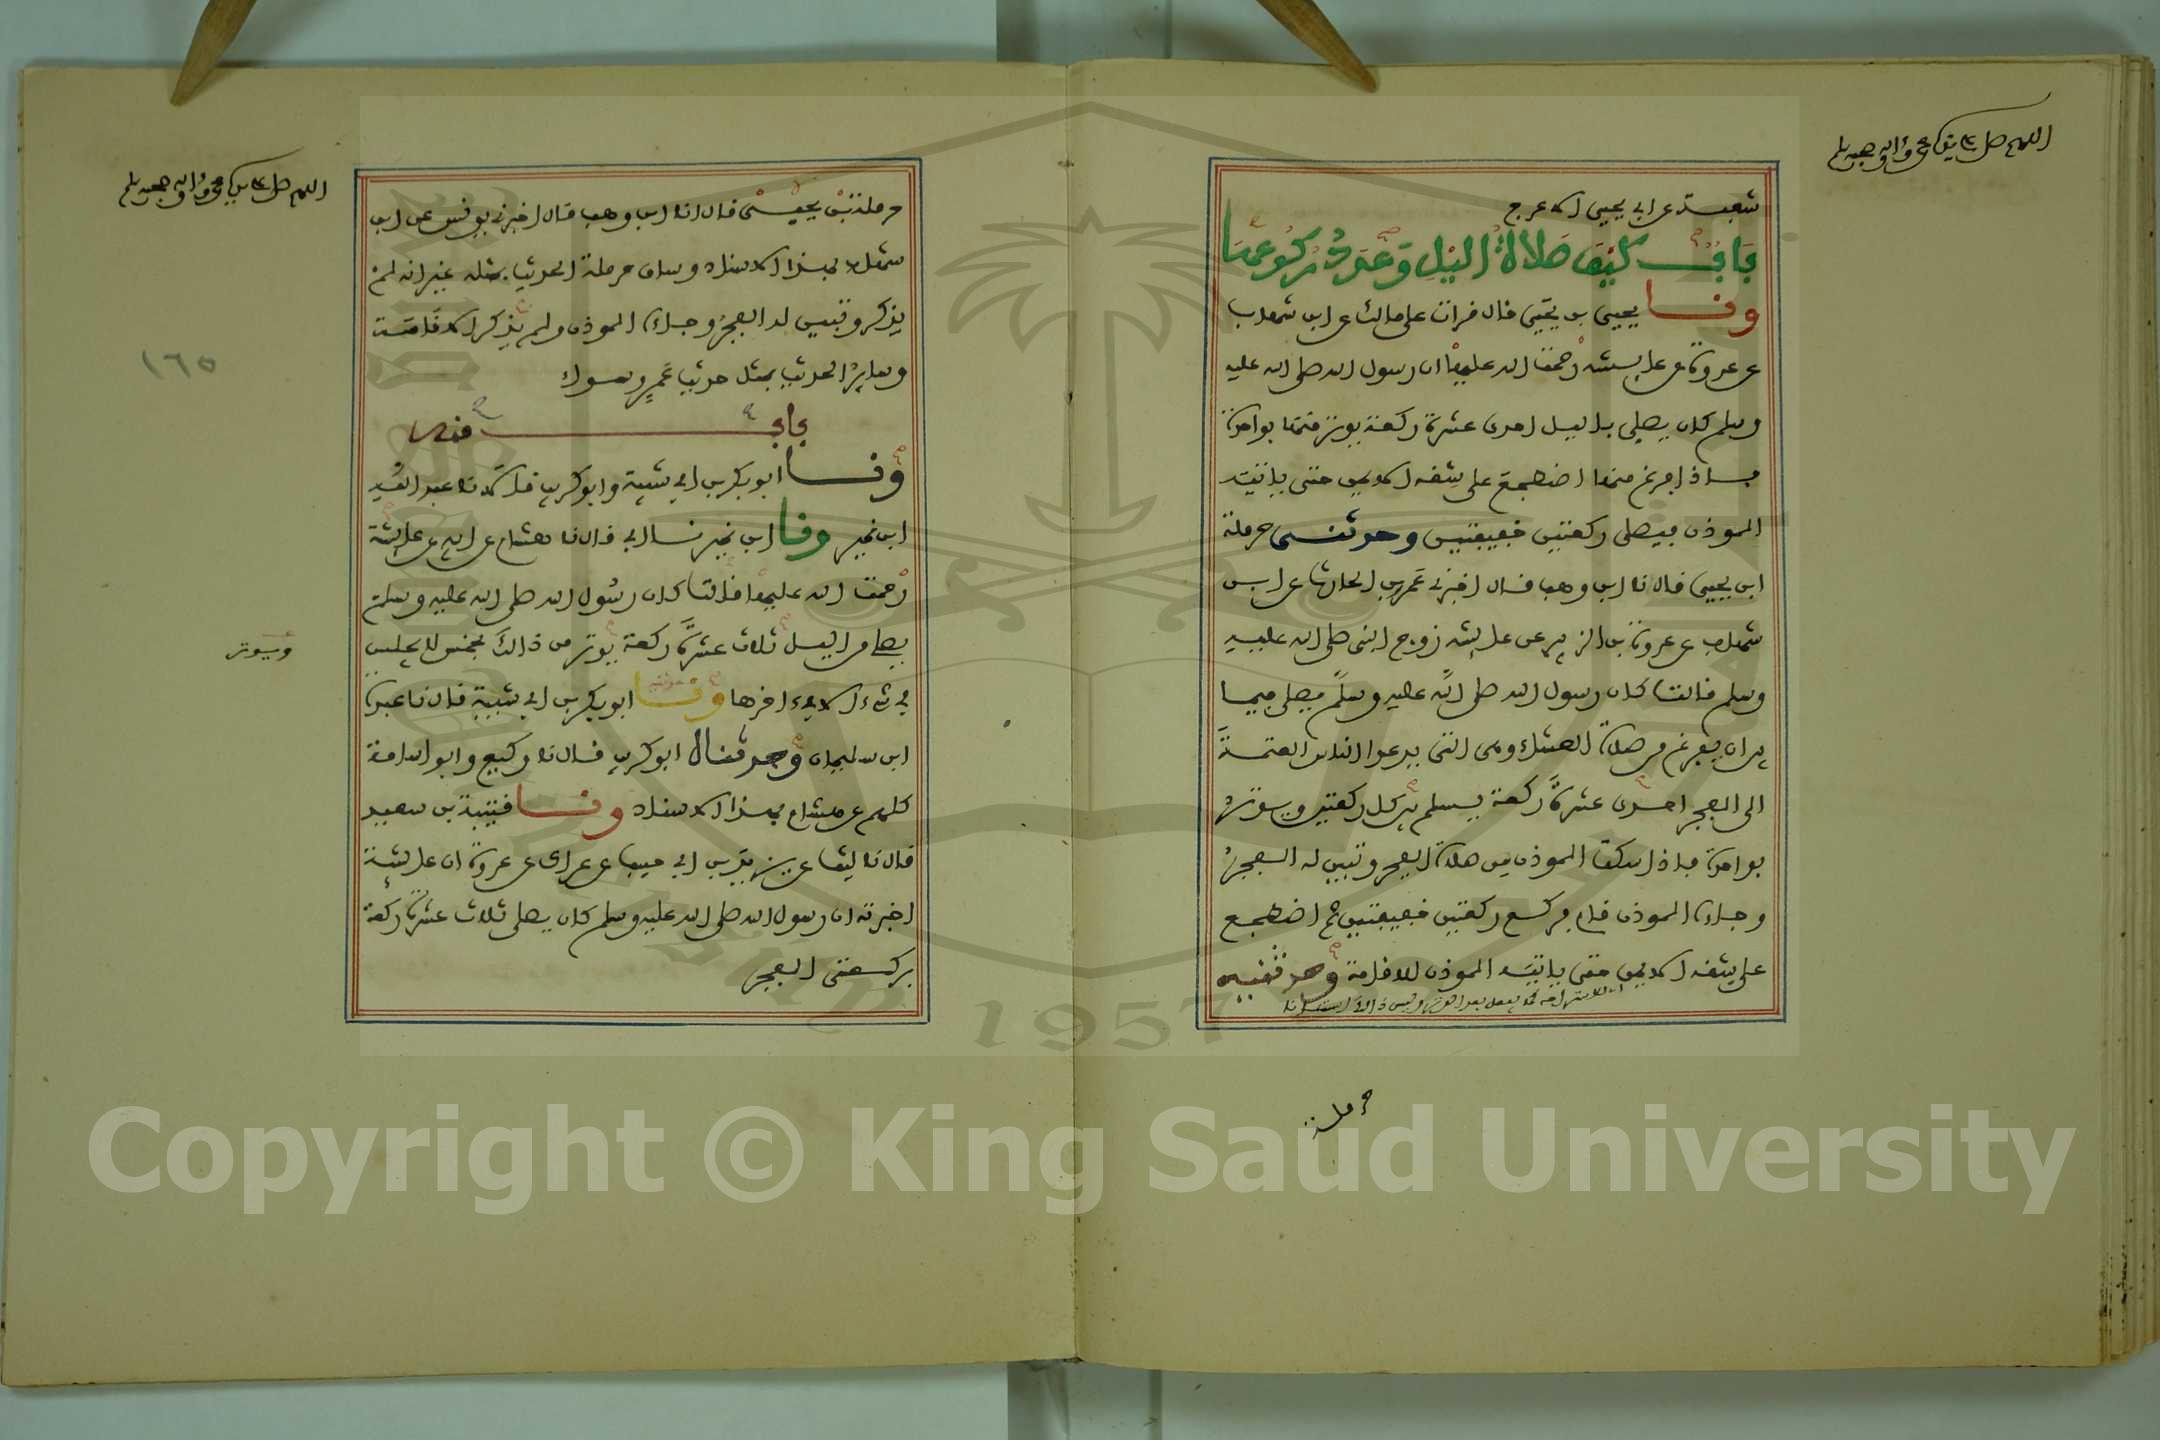 اللهم صل على سيدنا محمد وآله وصحبه وسلم
شعبة عن ابي يحيى الاعرج
باب كيف صلاة اليل وعدد ركوعها
وثنا يحيى بن يحيى قال قرات على مالك عن ابن شهاب
عن عروة عن عايشة رضي الله عنها ان رسول الله صلى الله عليه
وسلم كان يصلي باليل احدى عشرة ركعة يوتر منها بواحدة
فاذا فرغ منها اضطجع على شقه الايمن حتى ياتيه
الموذن فيصلي ركعتين خفيفتين وحدثنى حرملة
ابن يحيى قال نا ابن وهب قال اخبرني عمرو بن الحارث عن ابن
شهاب عن عروة بن الزبير عن عايشة زوج النبي صلى الله عليه
وسلم قالت كان رسول الله صلى الله عليه وسلم يصلي فيما
بين ان يفرغ من صلاة العشاء وهي التي يدعوا الناس العتمة
الى الفجر احدى عشرة ركعة يسلم بين كل ركعتين ويوتر
بواحدة فاذا سكت الموذن من صلاة الفجر وتبين له الفجر
وجاءه الموذن قام فركع ركعتين خفيفتين ثم اضطجع
على شقه الايمن حتى ياتيه الموذن للاقامة وحدثنيه
حرملة
اللهم صل على سيدنا محمد وآله وصحبه وسلم
حرملة بن يحيى قال انا ابن وهب قال اخبرني يونس عن ابن
شهاب بهذا الاسناد وساق حرملة الحديث بمثله غير انه لم
يذكر وتبين له الفجر وجاءه الموذن ولم يذكر الاقامة
وساير الحديث بمثل حديث عمرو سواء
باب منه
وثنا ابو بكر بن ابي شيبة وابو كريب قالا نا عبد الله
ابن نمير وثنا ابن نمير نا ابي قال نا هشام عن ابيه عن عايشة
رضي الله عنها قالت كان رسول الله صلى الله عليه وسلم
يصلي من اليل ثلاث عشرة ركعة يوتر من ذالك بخمس لا يجلس
ويوتر
في شيء الا في اخرها وثنا ابو بكر بن ابي شيبة قال نا عبدة
ابن سليمان وحدثناه ابو كريب قال نا وكيع وابو اسامة
كلهم عن هشام بهذا الاسناد وثنا قتيبة بن سعيد
قال نا ليث عن يزيد بن ابي حبيب عن عراك عن عروة ان عايشة
اخبرته ان رسول الله صلى الله عليه وسلم كان يصلي ثلاث عشرة ركعة
بركعتي الفجر
١٦٥
1957
Copyright © King Saud University